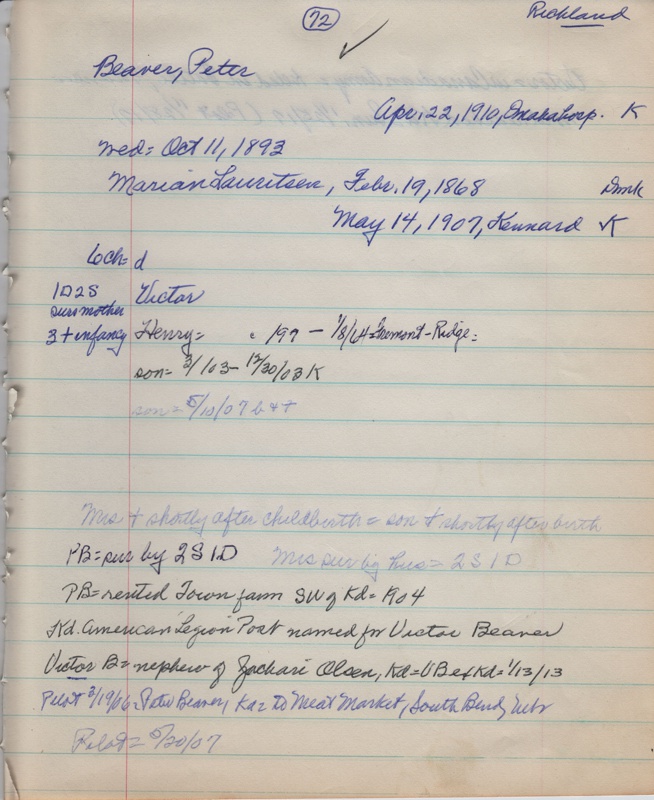 72
Richland
Beaver, Peter
Apr. 22, 1910, Omaha Corp. K
Med = Oct 11, 1893
Marian Lauritsen, Febr. 19, 1868 Dmk
May 14, 1907, Kennard K
6 ch = d
1D2S Victor
surv mother
3 + infancy Henry = 197 - 1/8/64 = Fremont - Ridge =
son = 3/ /03 - 12/30/03 K
son = 5/10/07 b & +
Mrs + shortly after childbirth = son + shortly after birth
PB = sur by 2S 1D Mrs sur by hus = 2S 1D
PB = rented Town farm SW of Kd = 1904
Kd. American Legion Post named for Victor Beaver
Victor B = nephew of Zachari Olsen, Kd = VB ex Kd = 1/13/13
Pilot 3/19/06 = Peter Beaver, Ka = to Meat Market, South Bend, Nebr
Pilot = 5/20/07